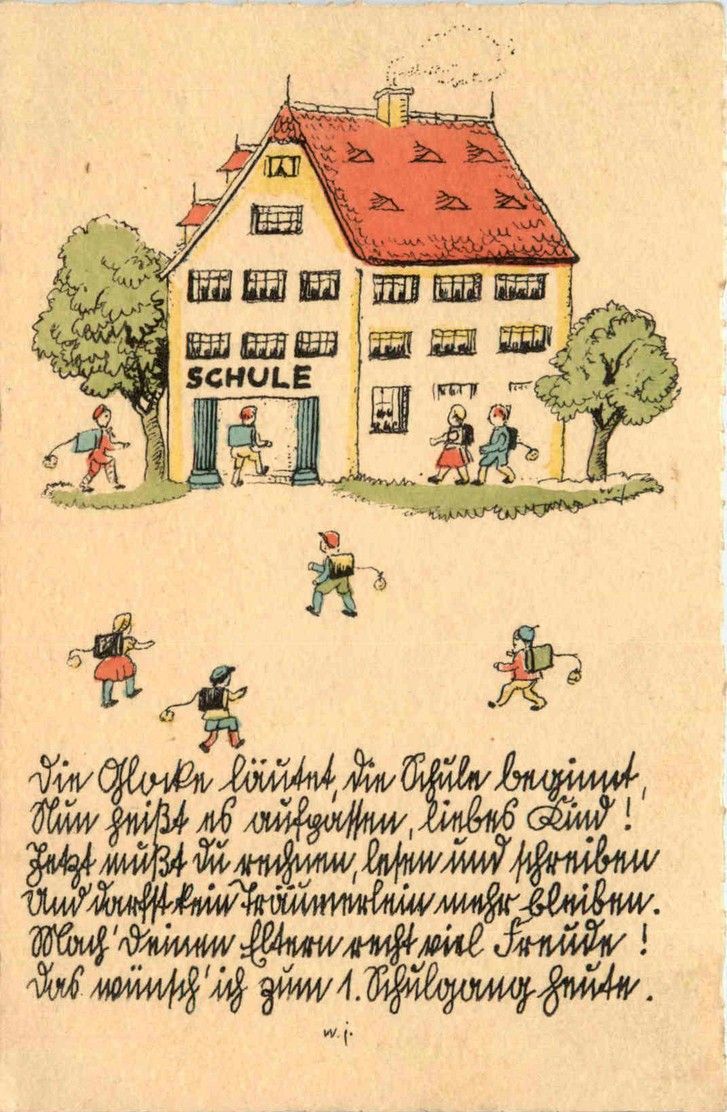 SCHULE
Die Glocke läutet, die Schule beginnt,
Nun heißt es aufpassen, liebes Kind!
Jetzt mußt Du rechnen, lesen und schreiben
Und darfst kein Träumerlein mehr bleiben.
Mach' Deinen Eltern recht viel Freude!
Das wünsch' ich zum 1. Schulgang heute.
w. j.